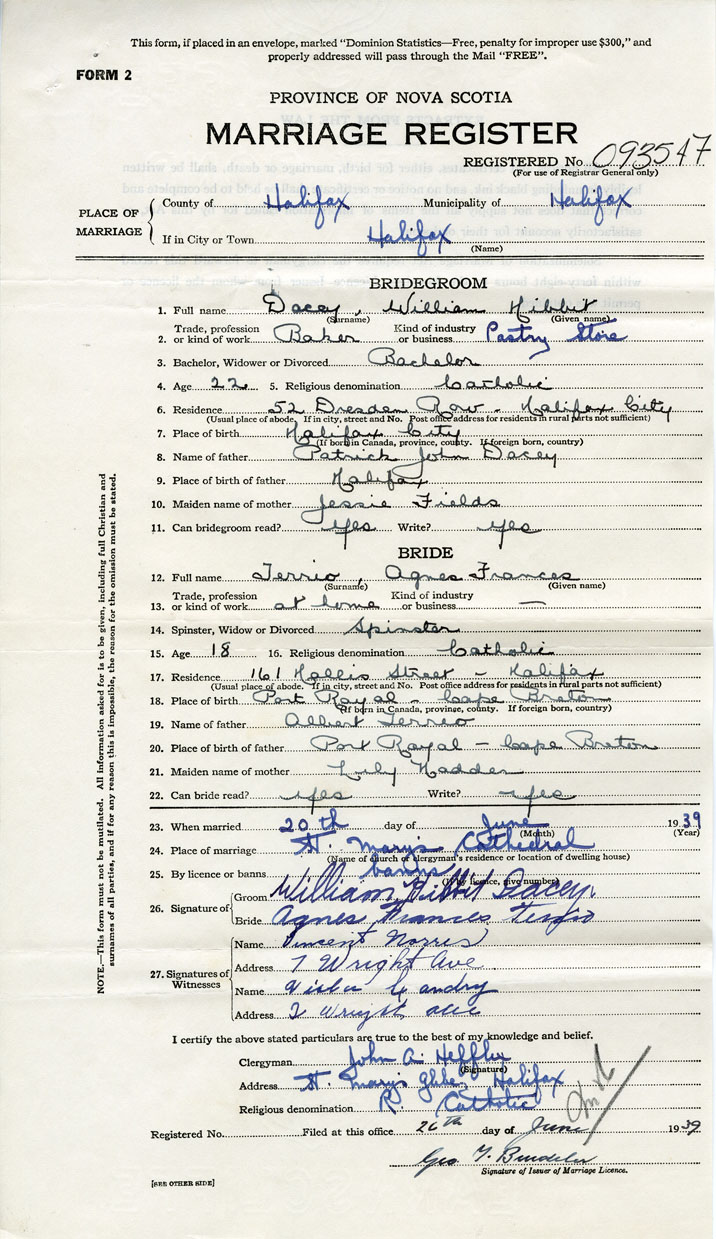 This form, if placed in an envelope, marked "Dominion Statistics—Free, penalty for improper use $300," and
properly addressed will pass through the Mail "FREE".
FORM 2
PROVINCE OF NOVA SCOTIA
MARRIAGE REGISTER
REGISTERED No. 093547
(For use of Registrar General only)
PLACE OF MARRIAGE
County of Halifax Municipality of Halifax
If in City or Town Halifax
(Name)
BRIDEGROOM
1. Full name Dacey, William Hibbit
(Surname) (Given name)
2. Trade, profession or kind of work Baker Kind of industry or business Pastry Store
3. Bachelor, Widower or Divorced Bachelor
4. Age 22 5. Religious denomination Catholic
6. Residence 52 Dresden Row - Halifax City
(Usual place of abode. If in city, street and No. Post office address for residents in rural parts not sufficient)
7. Place of birth Halifax City
(If born in Canada, province, county. If foreign born, country)
8. Name of father Patrick John Dacey
9. Place of birth of father Halifax
10. Maiden name of mother Jessie Fields
11. Can bridegroom read? Yes Write? Yes
BRIDE
12. Full name Terrio, Agnes Frances
(Surname) (Given name)
13. Trade, profession or kind of work at home Kind of industry or business —
14. Spinster, Widow or Divorced Spinster
15. Age 18 16. Religious denomination Catholic
17. Residence 161 Hollis Street - Halifax
(Usual place of abode. If in city, street and No. Post office address for residents in rural parts not sufficient)
18. Place of birth Port Royal - Cape Breton
(If born in Canada, province, county. If foreign born, country)
19. Name of father Albert Terrio
20. Place of birth of father Port Royal - Cape Breton
21. Maiden name of mother Lily Madden
22. Can bride read? Yes Write? Yes
23. When married 20th day of June 1939
(Month) (Year)
24. Place of marriage St. Mary's Cathedral
(Name of church or clergyman's residence or location of dwelling house)
25. By licence or banns banns
(If by licence, give number)
26. Signature of Groom William Hibbit Dacey
Bride Agnes Frances Terrio
27. Signatures of Witnesses
Name Vincent Norris
Address 7 Wright Ave
Name Landry
Address Wright Ave
I certify the above stated particulars are true to the best of my knowledge and belief.
Clergyman John A. Heffler
(Signature)
Address St. Mary's Glebe, Halifax
Religious denomination R. Catholic
Registered No. Filed at this office 26th day of June 1939
Geo. T.
Signature of Issuer of Marriage Licence.
[SEE OTHER SIDE]
NOTE.—This form must not be mutilated. All information asked for is to be given, including full Christian and
surnames of all parties, and if for any reason this is impossible, the reason for the omission must be stated.